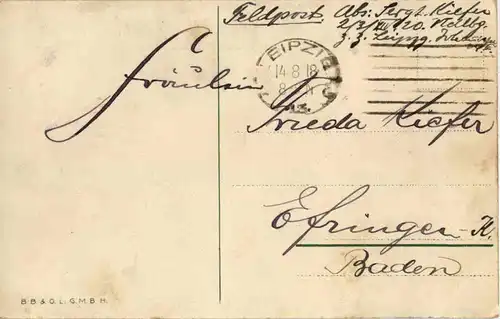 Feldpost. Abs: Sergt. Kiefer
LEIPZIG
14.8.18
Fräulein
Frieda Kiefer
Efringen-K.
Baden
B.B & O.L.G.M.B.H.